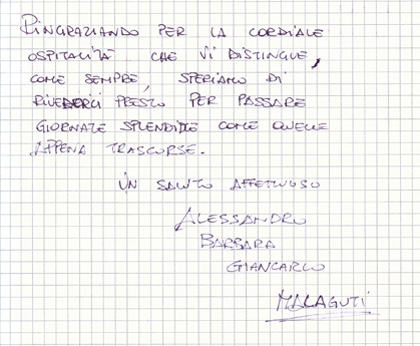 RINGRAZIANDO PER LA CORDIALE
OSPITALITÀ CHE VI DISTINGUE,
COME SEMPRE, SPERIAMO DI
RIVEDERCI PRESTO PER PASSARE
GIORNATE SPLENDIDE COME QUELLE
APPENA TRASCORSE.
UN SALUTO AFFETTUOSO
ALESSANDRO
BARBARA
GIANCARLO
MALAGUTI